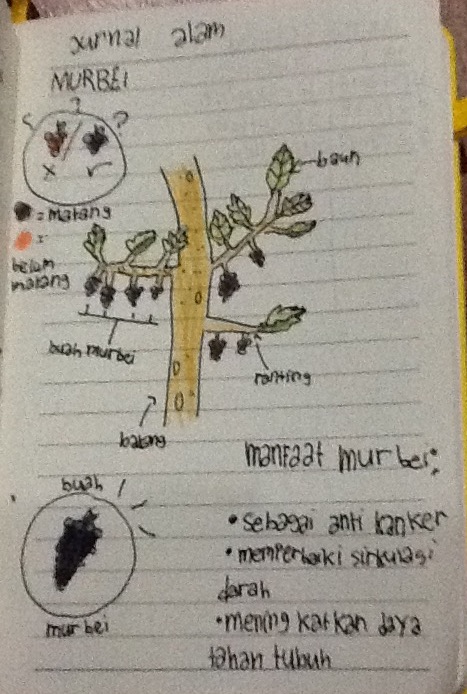 Jurnal alam
MURBEI
? ? ?
x ✓
= matang
=
belum
matang
daun
buah murbei
ranting
batang
manfaat murbei:
buah
murbei
• sebagai anti kanker
• memperbaiki sirkulasi
darah
• mening katkan daya
tahan tubuh